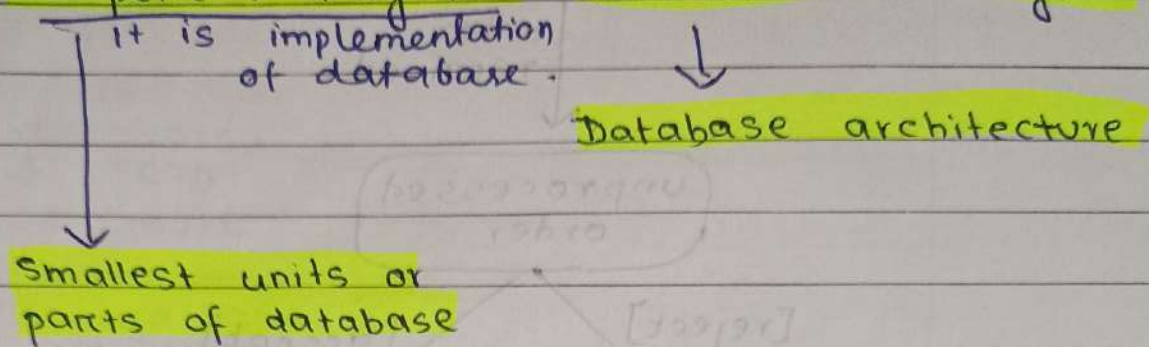 it is implementation
of database.
Database architecture
Smallest units or
parts of database